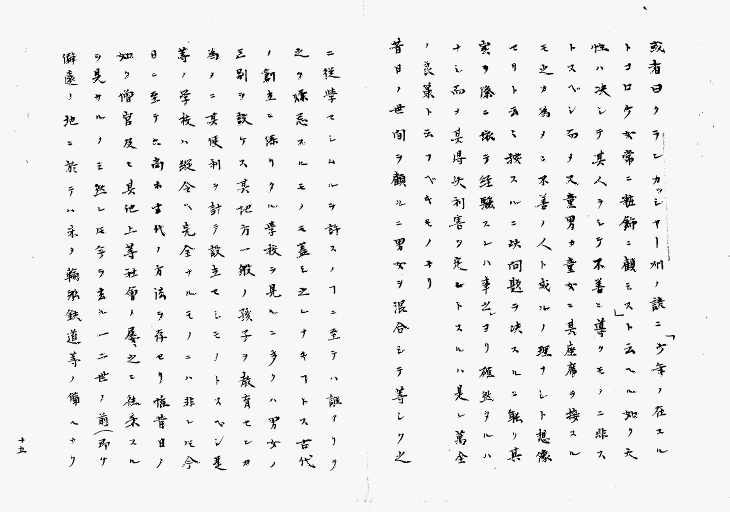 或者曰クランカッシャー州ノ諺ニ「少年ノ在スル
トコロ少女常ニ粧飾ニ顧ミスト」云ヘル如ク天
性ハ決シテ其人ヲシテ不善ニ導クモノニ非ス
トスベシ而ヲ又童男カ童女ニ其座席ヲ接スル
モ之カ為メニ不善ノ人ト成ルノ理ナシト想像
セリト云ミ
実際ニ依テ経験スレハ事
ナシ而ヲ其得失利害ヲ定ムトスルハ是レ萬全
ノ良策ト云フベキモノナリ
昔日ノ世間ヲ顧ルニ男女ヲ混合シテ等シク之
ニ従学セシムルヲ許スノフニ至テハ誰アリテ
之ヲ嫌忌スルモノモ蓋シ之レナキフトス古代
ノ創立ニ係リタル学校ヲ見ルニ多クハ男女ノ
区別ヲ設ケス其地方一般ノ孩子ヲ教育センカ
為メニ其便利ヲ計テ設立セシモノトスベシ是
等ノ学校ハ縦令ヘ完全ナルモノニハ非レ𪜈今
日ニ至テモ尚ホ古代ノ方法ヲ存セリ惟昔日ノ
如ク僧官及ヒ其他上等社會ノ屡之ニ往来スル
ヲ見サルノミ然レ𪜈今ヲ去ル一二世ノ前(即チ
僻遠ノ地ニ於テハ未タ輪船鉄道等ノ備ヘナク
十五